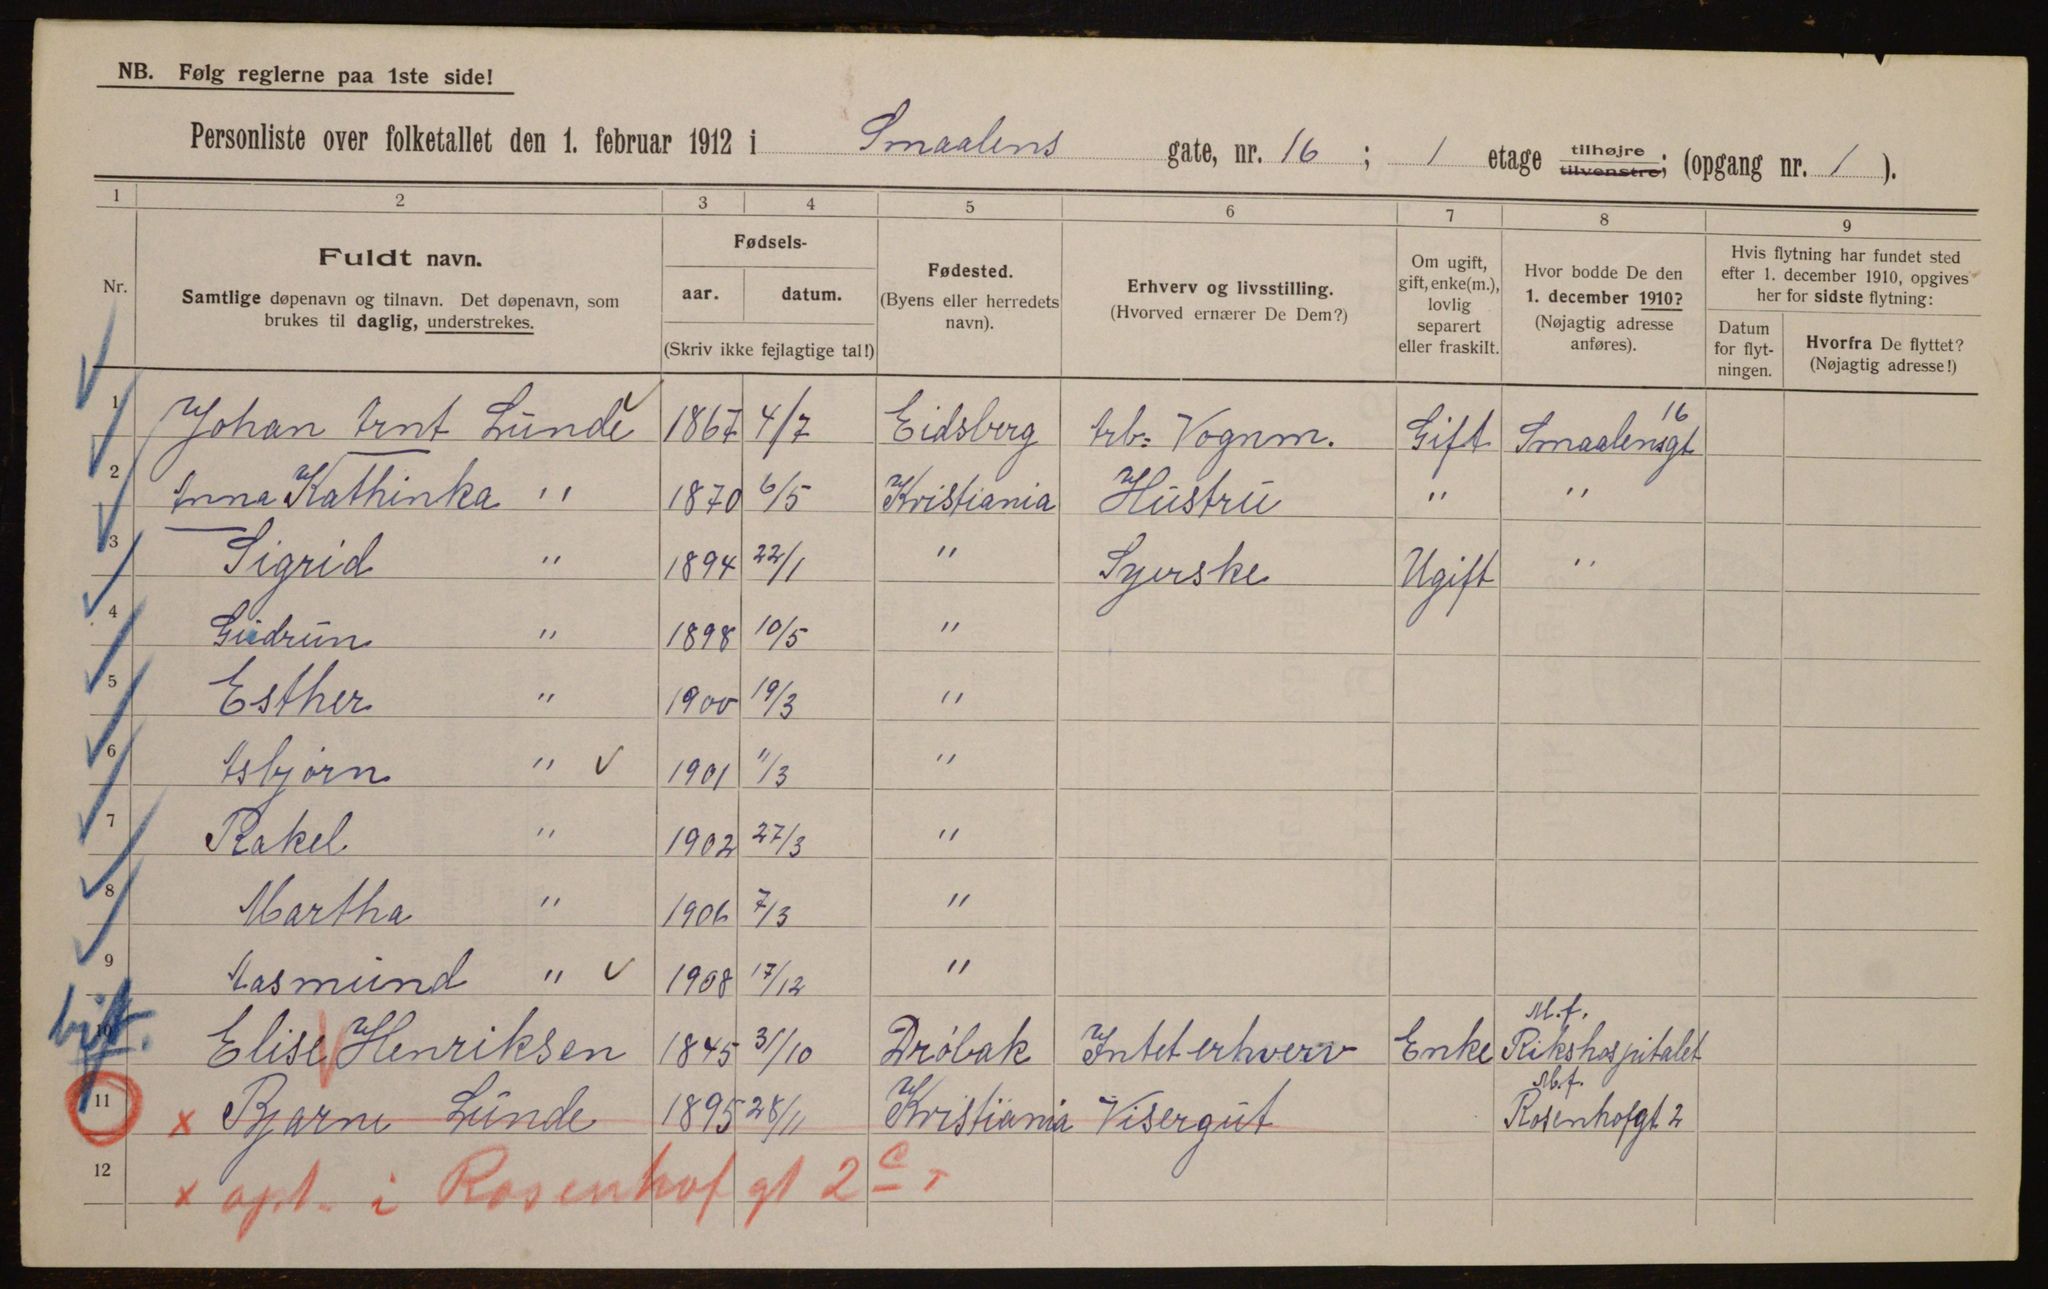 NB. Følg reglerne paa 1ste side!
Personliste over folketallet den 1. februar 1912 i Smaalens gate, nr. 16; 1 etage tilhøjre tilvenstre; (opgang nr. 1).
1 2 3 4 5 6 7 8 9
Nr.
Fuldt navn.
Samtlige døpenavn og tilnavn. Det døpenavn, som
brukes til daglig, understrekes.
Fødsels-
aar. datum.
(Skriv ikke fejlagtige tal!)
Fødested.
(Byens eller herredets
navn).
Erhverv og livsstilling.
(Hvorved ernærer De Dem?)
Om ugift,
gift, enke(m.),
lovlig
separert
eller fraskilt.
Hvor bodde De den
1. december 1910?
(Nøjagtig adresse
anføres).
Hvis flytning har fundet sted
efter 1. december 1910, opgives
her for sidste flytning:
Datum
for flyt-
ningen.
Hvorfra De flyttet?
(Nøjagtig adresse!)
1 Johan Arnt Lunde 1867 4/7 Eidsberg Arb. Vognm. Gift Smaalensgt 16
2 Anna Kathinka " 1870 6/5 Kristiania Hustru " "
3 Sigrid " 1894 22/1 " Syerske Ugift "
4 Gudrun " 1898 10/5 "
5 Esther " 1900 19/3 "
6 Asbjørn " 1901 11/3 "
7 Rakel " 1902 27/3 "
8 Martha " 1906 7/3 "
9 Aasmund " 1908 17/12 "
10 Elise Henriksen 1845 31/10 Drøbak Intet erhverv Enke M.f. Rikshospitalet
11 x Bjarne Lunde 1895 28/11 Kristiania Visergut M.f. Rosenhofgt 2
12 x opt. i Rosenhof gt 2 c